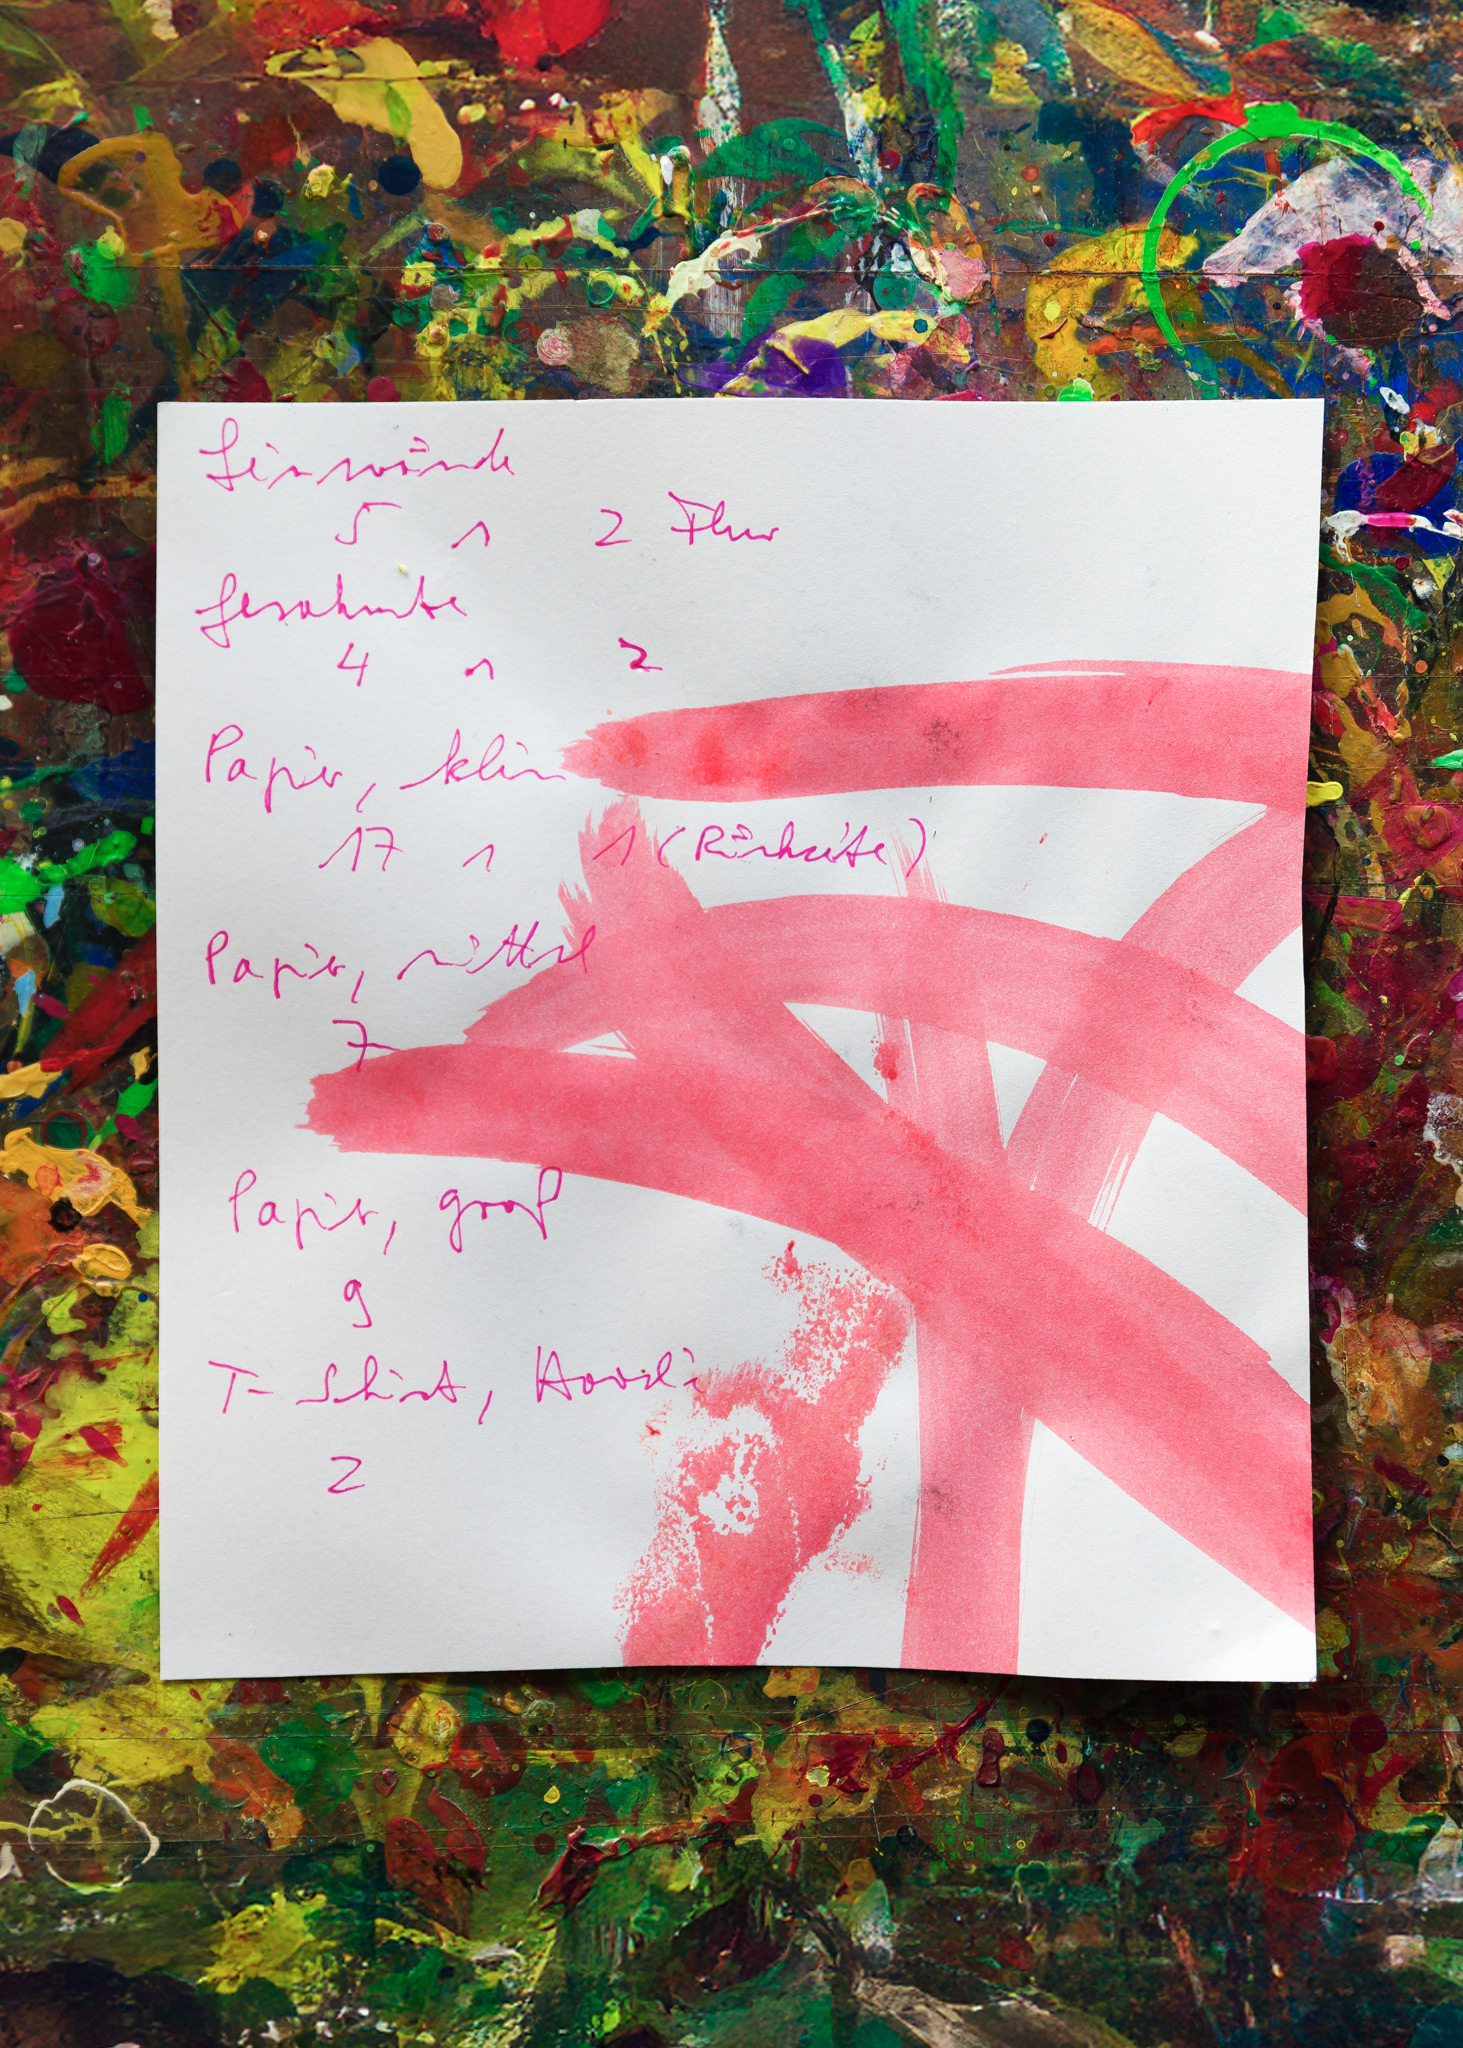 Leinwände
5 1 2 Flur
Gerahmte
4 1 2
Papier, klein
17 1 1 (Rückseite)
Papier, mittel
7
Papier, groß
9
T-Shirt, Hoodi
2